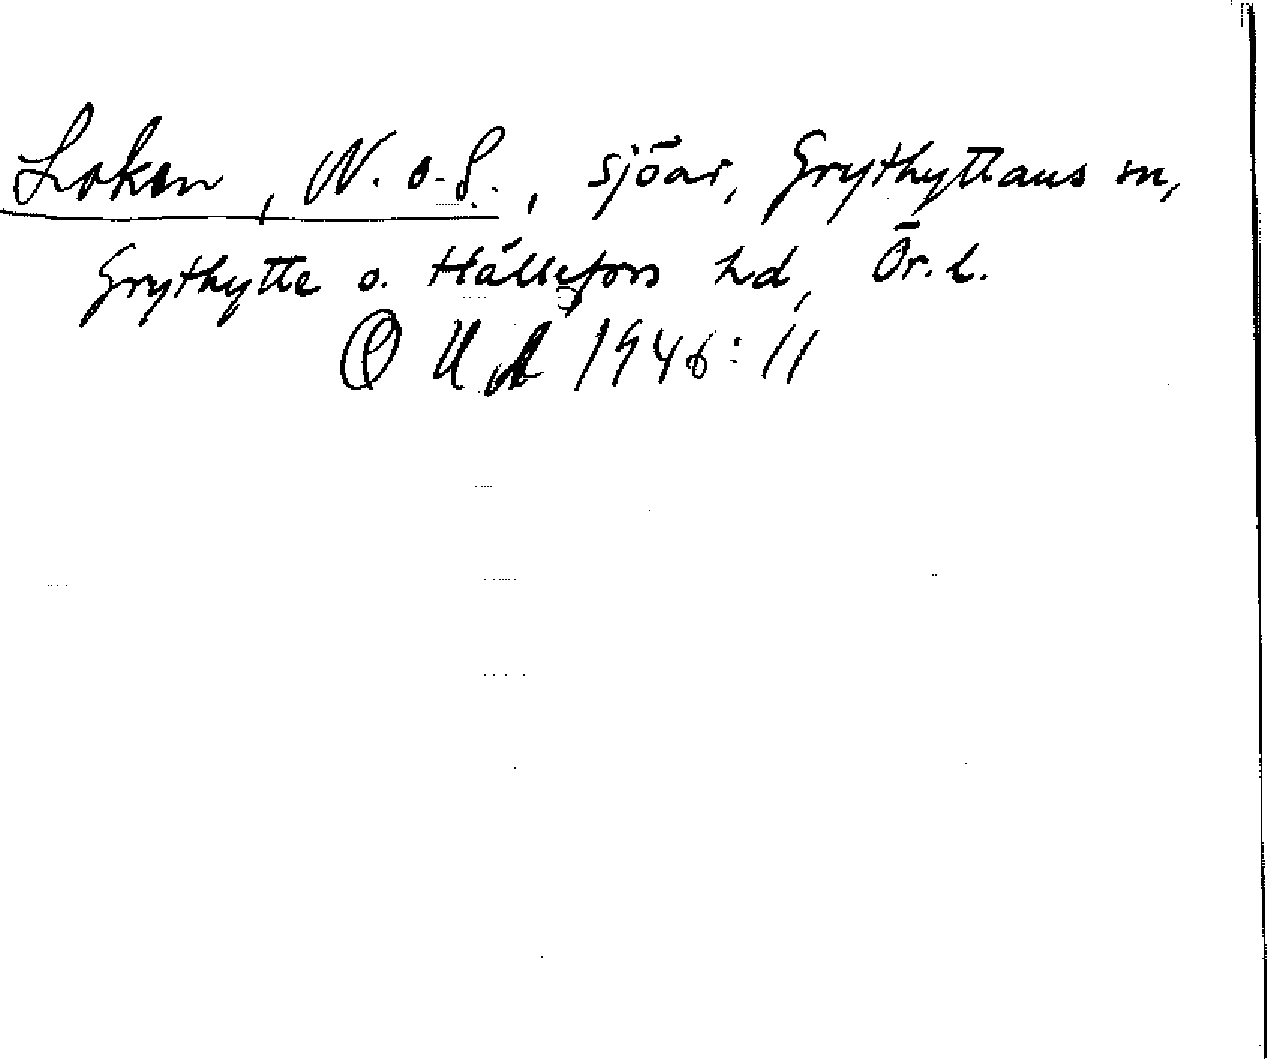 Loken, N. o. S., sjöar, Grythyttans sn,
Grythytte o. Hällefors hd, Ör. l.
OUÅ 1946: 11